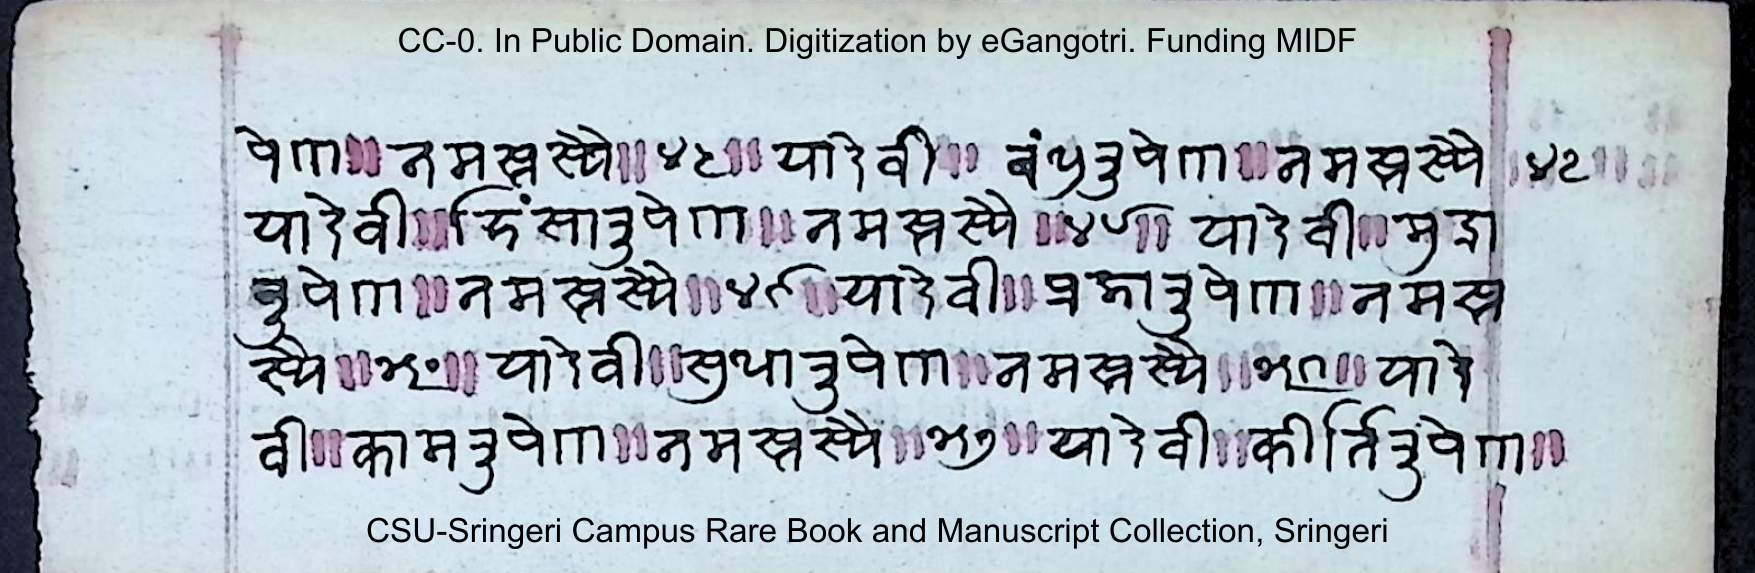 CC-0. In Public Domain. Digitization by eGangotri. Funding MIDF
पेण॥ नमस्तस्यै॥ ॥ यादेवी॥ बंधुरुपेण॥ नमस्तस्यै
यादेवी॥ हिंसारुपेण॥ नमस्तस्यै ॥ ॥ यादेवी॥ मुद्रा
रुपेण॥ नमस्तस्यै॥ ॥ यादेवी॥ रुपेण॥ नमस्त
स्यै॥५०॥ यादेवी॥ रुपेण॥ नमस्तस्यै ॥५१॥ यादे
वी॥ कामरुपेण॥ नमस्तस्यै॥ ॥ यादेवी॥ कीर्तिरुपेण॥
CSU-Sringeri Campus Rare Book and Manuscript Collection, Sringeri